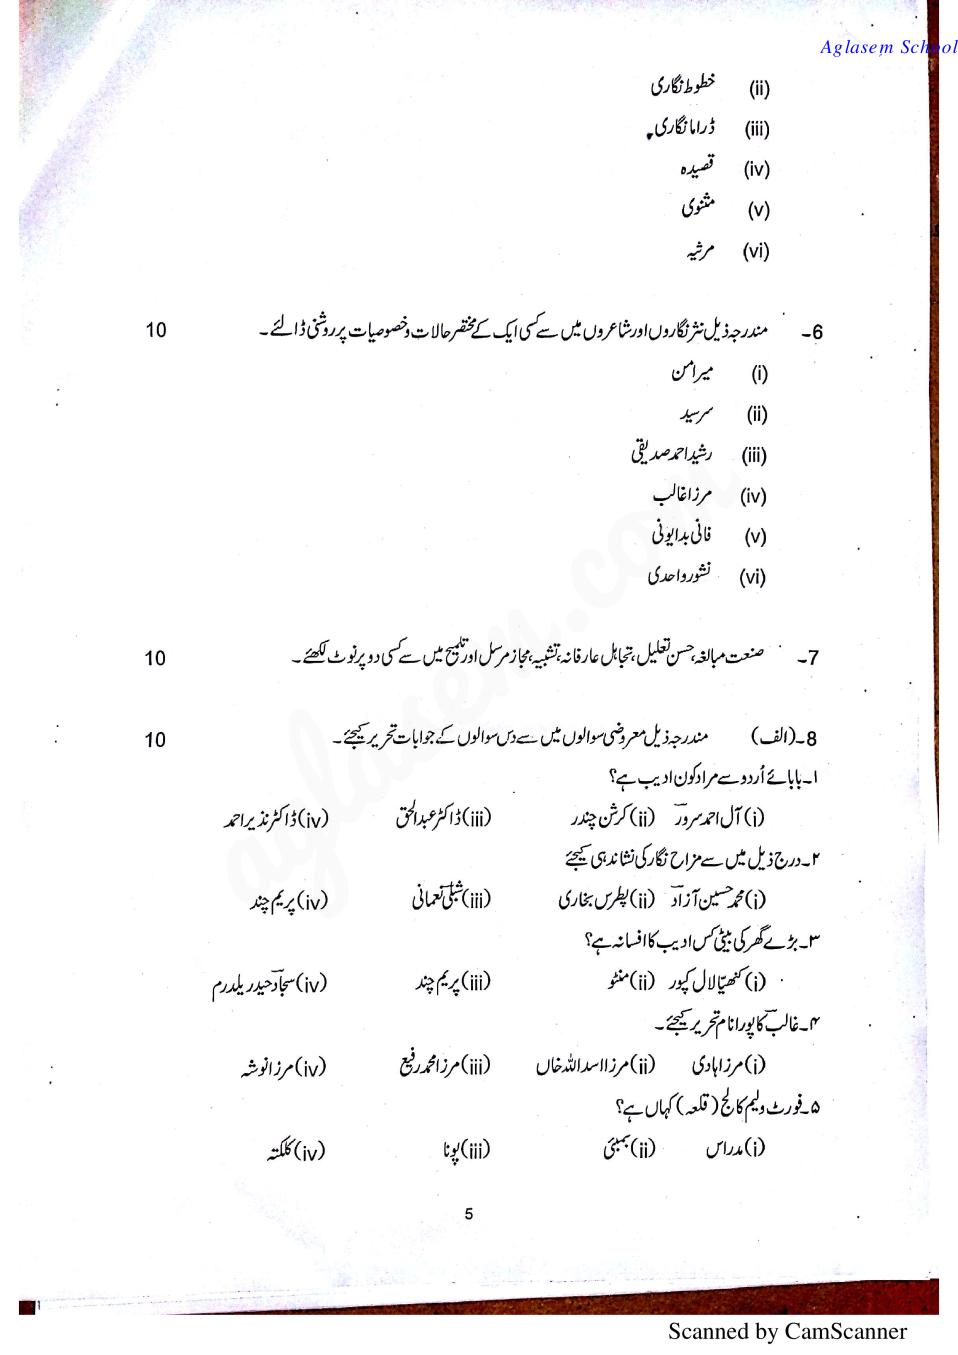 Aglasem School
(ii) خطوط نگاری
(iii) ڈراما نگاری
(iv) قصیدہ
(v) مثنوی
(vi) مرثیہ
6۔ مندرجہ ذیل نثر نگاروں اور شاعروں میں سے کسی ایک کے مختصر حالات و خصوصیات پر روشنی ڈالئے۔ 10
(i) میرامن
(ii) سرسید
(iii) رشید احمد صدیقی
(iv) مرزا غالب
(v) فانی بدایونی
(vi) نشور واحدی
7۔ صنعت مبالغہ، حسن تعلیل، تجاہل عارفانہ، تشبیہ، مجاز مرسل اور تلمیح میں سے کسی دو پر نوٹ لکھئے۔ 10
8۔(الف) مندرجہ ذیل معروضی سوالوں میں سے دس سوالوں کے جوابات تحریر کیجئے۔ 10
۱۔بابائے اُردو سے مراد کون ادیب ہے؟
(i) آل احمد سرور (ii) کرشن چندر (iii) ڈاکٹر عبدالحق (iv) ڈاکٹر نذیر احمد
۲۔درج ذیل میں سے مزاح نگار کی نشاندہی کیجئے
(i) محمد حسین آزاد (ii) پطرس بخاری (iii) شبلی نعمانی (iv) پریم چند
۳۔بڑے گھر کی بیٹی کس ادیب کا افسانہ ہے؟
(i) کنھیّا لال کپور (ii) منٹو (iii) پریم چند (iv) سجاد حیدر یلدرم
۴۔غالب کا پورا نام تحریر کیجئے۔
(i) مرزا ہادی (ii) مرزا اسد اللہ خاں (iii) مرزا محمد رفیع (iv) مرزا نوشہ
۵۔فورٹ ولیم کالج (قلعہ) کہاں ہے؟
(i) مدراس (ii) بمبئی (iii) پونا (iv) کلکتہ
5
aglasem.com
Scanned by CamScanner